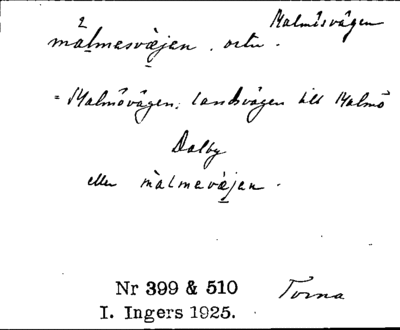 Malmövägen
målmesvæjen. ortn.
= Malmövägen; landsvägen till Malmö
Dalby
eller màlmevæjen.
Nr 399 & 510
Torna
I. Ingers 1925.